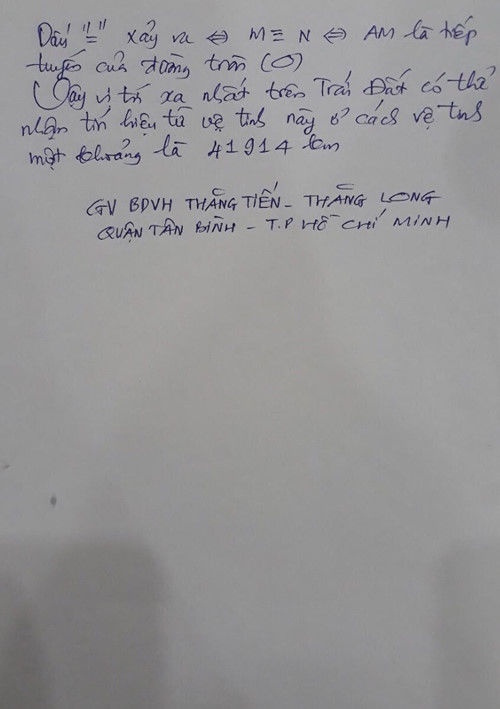 Dấu "=" xảy ra ⇔ M ≡ N ⇔ AM là tiếp
tuyến của đường tròn (O)
Vậy vị trí xa nhất trên Trái Đất có thể
nhận tín hiệu từ vệ tinh này ở cách vệ tinh
một khoảng là 41914 km
GV BDVH THĂNG TIẾN - THĂNG LONG
QUẬN TÂN BÌNH - T.P HỒ CHÍ MINH